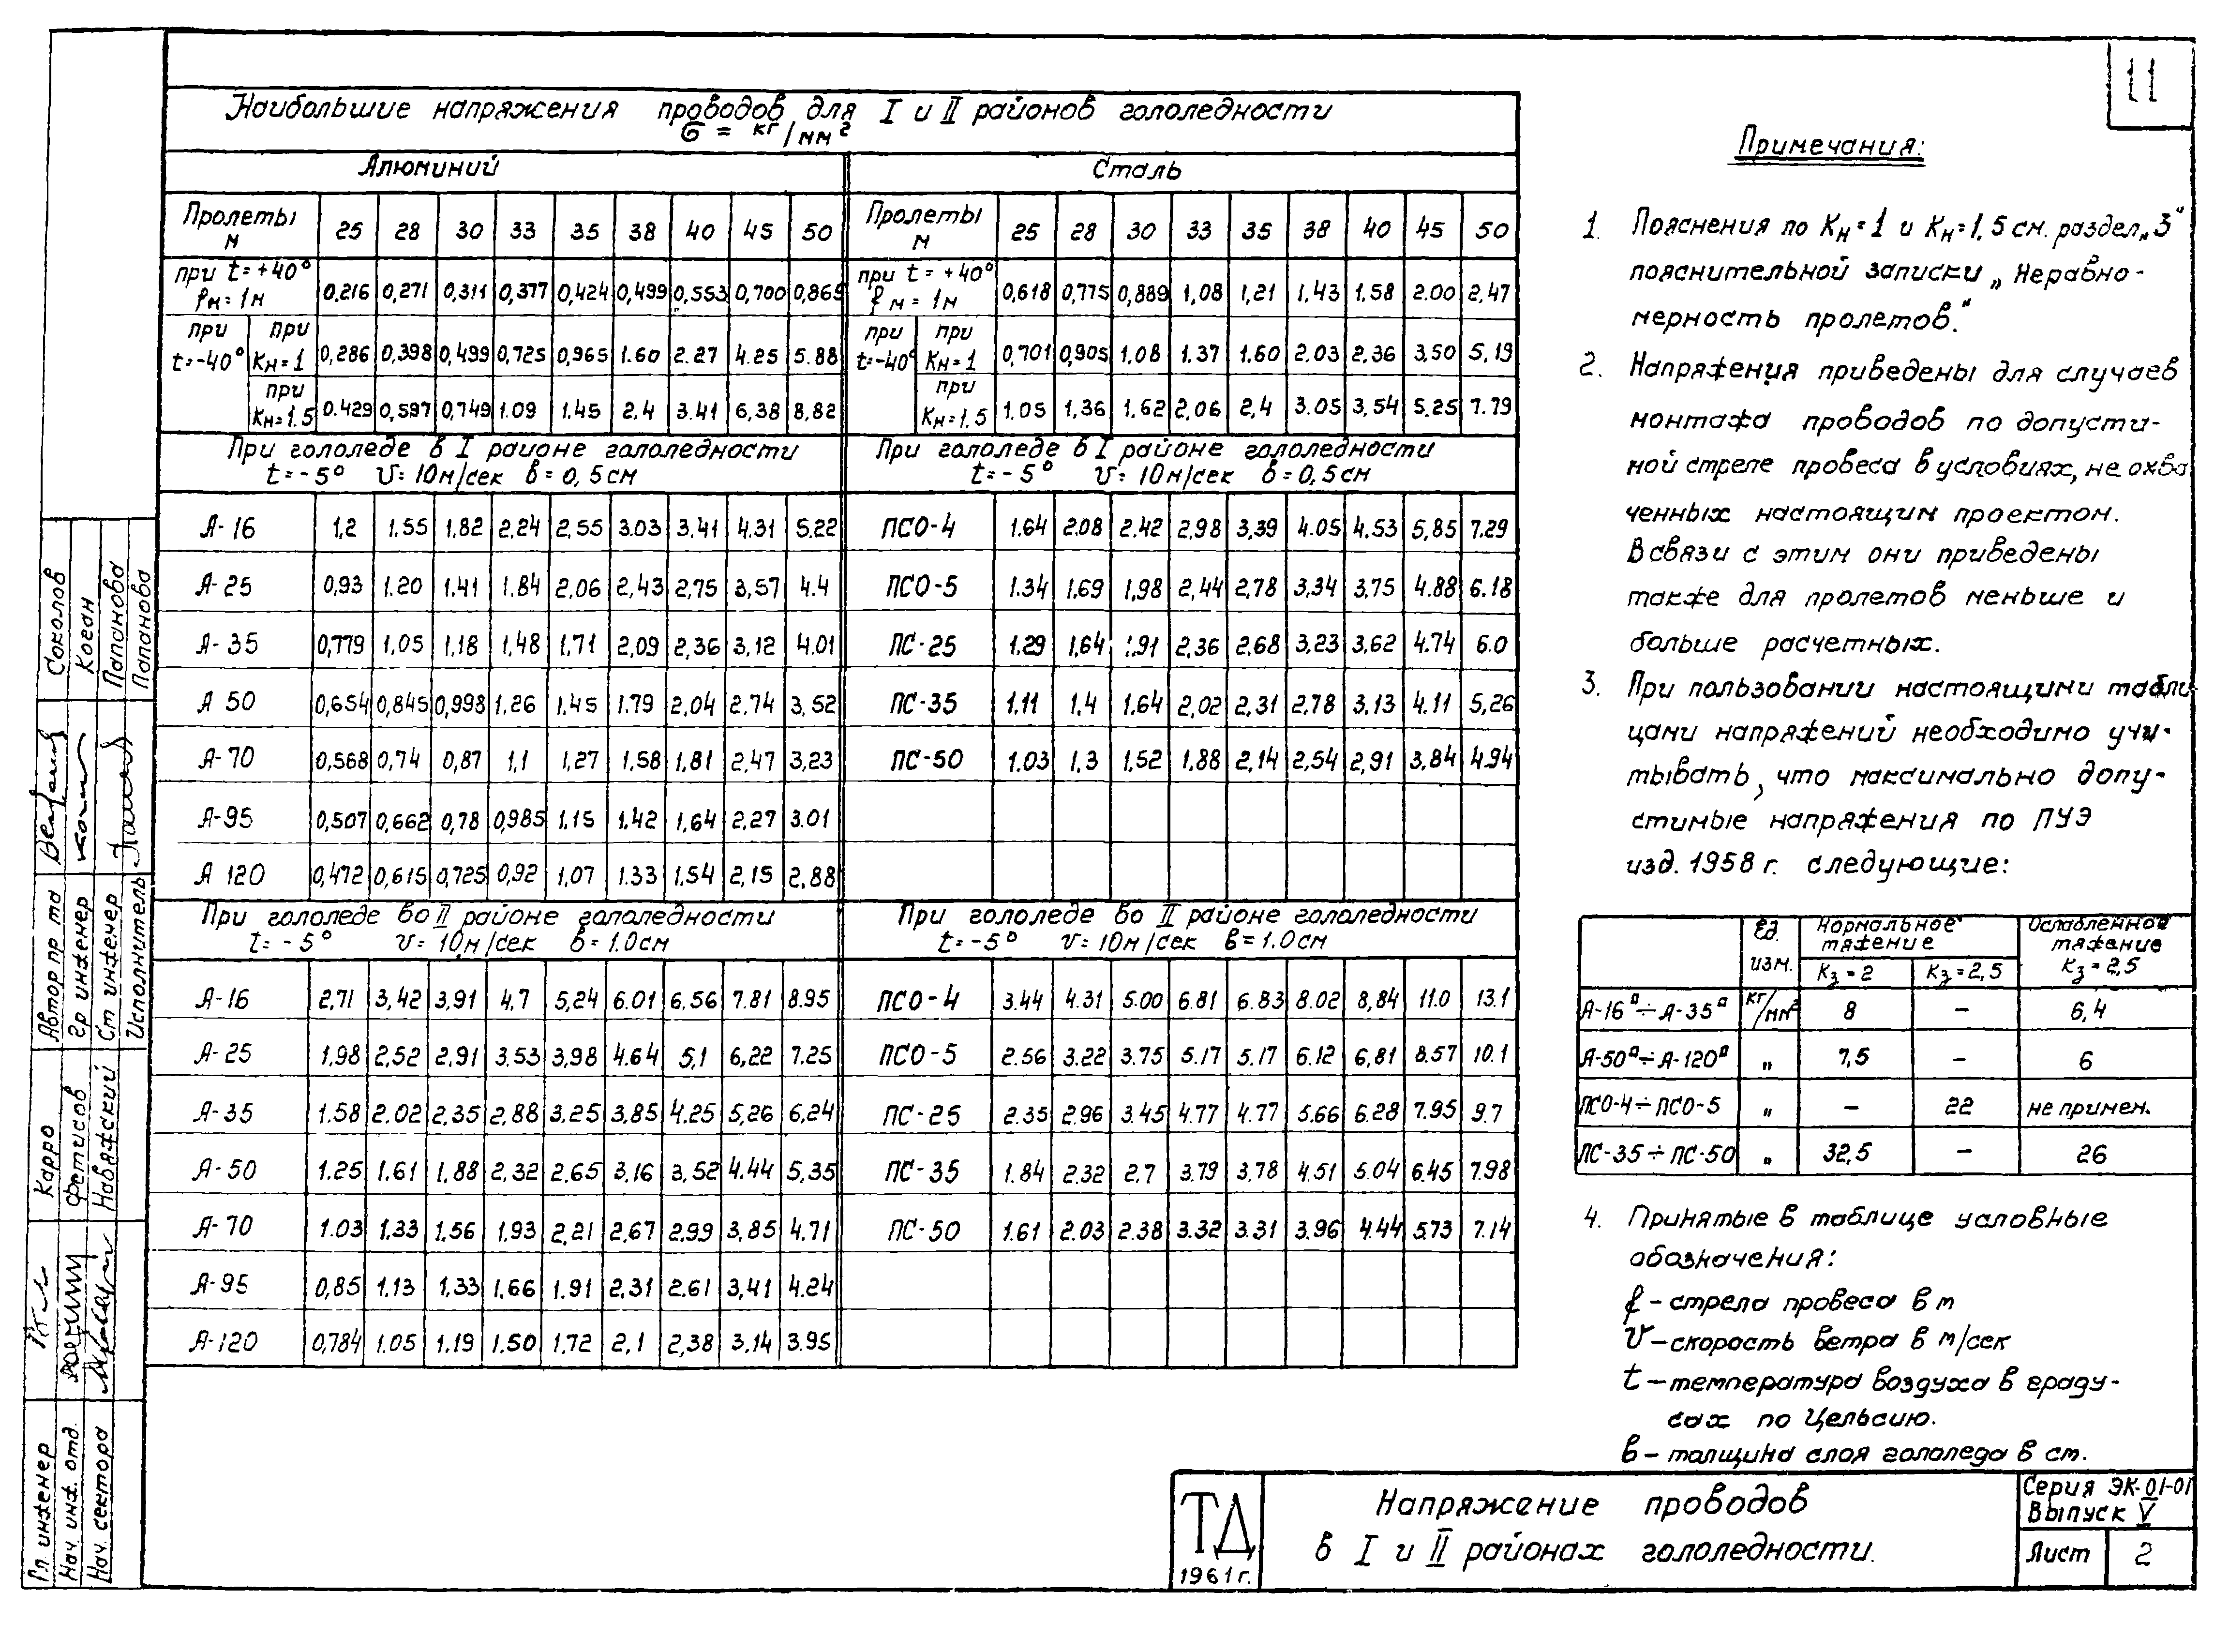 11
Наибольшие напряжения проводов для I и II районов гололедности
σ = кг/мм²
Алюминий Сталь
Пролеты м 25 28 30 33 35 38 40 45 50 Пролеты м 25 28 30 33 35 38 40 45 50
при t=+40° fм=1м 0,216 0,271 0,311 0,377 0,424 0,499 0,553 0,700 0,865 при t=+40° fм=1м 0,618 0,775 0,889 1,08 1,21 1.43 1.58 2.00 2,47
при t=-40° при Kн=1 0,286 0,398 0,499 0,725 0,965 1.60 2.27 4.25 5.88 при t=-40° при Kн=1 0,701 0,905 1.08 1.37 1.60 2.03 2,36 3,50 5,19
при Kн=1.5 0.429 0,597 0,749 1.09 1.45 2,4 3.41 6,38 8,82 при Kн=1,5 1.05 1,36 1.62 2,06 2,4 3.05 3,54 5.25 7.79
При гололеде в I районе гололедности При гололеде в I районе гололедности
t=-5° v=10м/сек в=0,5см t=-5° v=10м/сек в=0,5см
А-16 1,2 1.55 1,82 2,24 2,55 3.03 3,41 4.31 5.22 ПСО-4 1.64 2.08 2.42 2,98 3,39 4.05 4,53 5,85 7.29
А-25 0,93 1.20 1.41 1.84 2,06 2,43 2,75 3,57 4.4 ПСО-5 1.34 1.69 1,98 2,44 2,78 3,34 3,75 4.88 6.18
А-35 0,779 1.05 1,18 1,48 1,71 2,09 2,36 3,12 4.01 ПС-25 1.29 1,64 1.91 2,36 2,68 3,23 3,62 4.74 6.0
А 50 0,654 0,845 0,998 1.26 1.45 1.79 2,04 2.74 3,52 ПС-35 1.11 1.4 1.64 2,02 2,31 2,78 3,13 4.11 5,26
А-70 0,568 0,74 0,87 1,1 1,27 1,58 1,81 2,47 3,23 ПС-50 1.03 1.3 1,52 1,88 2,14 2,54 2,91 3,84 4.94
А-95 0,507 0,662 0,78 0,985 1.15 1.42 1,64 2,27 3.01
А 120 0,472 0,615 0,725 0,92 1,07 1.33 1,54 2,15 2.88
При гололеде во II районе гололедности При гололеде во II районе гололедности
t=-5° v=10м/сек в=1.0см t=-5° v=10м/сек в=1.0см
А-16 2,71 3,42 3,91 4,7 5,24 6.01 6,56 7.81 8.95 ПСО-4 3.44 4.31 5.00 6.81 6.83 8.02 8,84 11.0 13.1
А-25 1.98 2,52 2,91 3,53 3,98 4.64 5,1 6,22 7.25 ПСО-5 2.56 3.22 3.75 5.17 5.17 6.12 6,81 8.57 10.1
А-35 1.58 2.02 2,35 2,88 3,25 3,85 4.25 5,26 6,24 ПС-25 2.35 2.96 3.45 4.77 4.77 5.66 6.28 7.95 9.7
А-50 1.25 1.61 1,88 2,32 2.65 3,16 3,52 4.44 5,35 ПС-35 1.84 2.32 2.7 3.79 3,78 4.51 5.04 6.45 7.98
А-70 1.03 1,33 1.56 1,93 2,21 2,67 2,99 3,85 4.71 ПС-50 1.61 2.03 2.38 3.32 3.31 3.96 4.44 5.73 7.14
А-95 0,85 1.13 1,33 1.66 1.91 2,31 2.61 3,41 4.24
А-120 0,784 1.05 1.19 1.50 1.72 2,1 2,38 3.14 3.95
Примечания:
1. Пояснения по Kн=1 и Kн=1,5 см. раздел „3"
пояснительной записки „Неравно-
мерность пролетов."
2. Напряжения приведены для случаев
монтажа проводов по допусти-
мой стреле провеса в условиях, не охва
ченных настоящим проектом.
В связи с этим они приведены
также для пролетов меньше и
больше расчетных.
3. При пользовании настоящими табли
цами напряжений необходимо учи-
тывать, что максимально допу-
стимые напряжения по ПУЭ
изд. 1958 г. следующие:
Ед. изм. Нормальное тяжение Ослабленное тяжение
Kз=2 Kз=2,5 Kз=2,5
А-16ᵃ÷А-35ᵃ кг/мм² 8 — 6,4
А-50ᵃ÷А-120ᵃ „ 7,5 — 6
ПСО-4÷ПСО-5 „ — 22 не примен.
ПС-35÷ПС-50 „ 32,5 — 26
4. Принятые в таблице условные
обозначения:
f - стрела провеса в м
v - скорость ветра в м/сек
t - температура воздуха в граду-
сах по Цельсию.
в - толщина слоя гололеда в см.
ТД
1961 г.
Напряжение проводов
в I и II районах гололедности.
Серия ЭК-01-01
Выпуск V
Лист 2
Соколов
Коган
Папанова
Папанова
Автор пр та
Гр инженер
Ст инженер
Исполнитель
Карро
Фетисов
Навяжский
Гл. инженер
Нач. инж. отд.
Нач. сектора